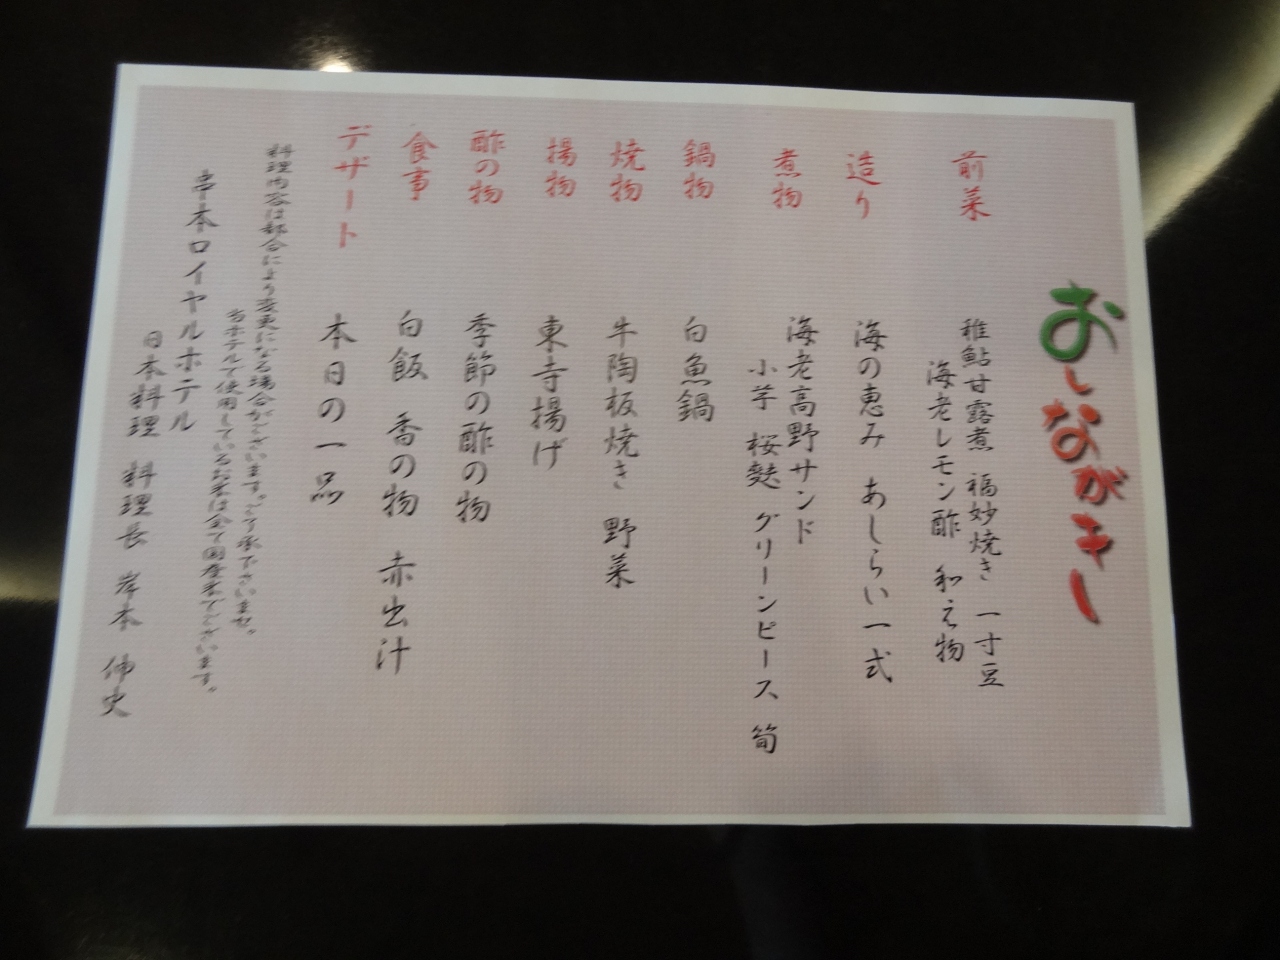 おしながき
前菜
稚鮎甘露煮 福妙焼き 一寸豆
海老レモン酢 和え物
造り
海の恵み あしらい一式
煮物
海老高野サンド
小芋 桜麩 グリーンピース 筍
鍋物
白魚鍋
焼物
牛陶板焼き 野菜
揚物
東寺揚げ
酢の物
季節の酢の物
食事
白飯 香の物 赤出汁
デザート
本日の一品
料理内容は都合により変更になる場合がございます。ご了承下さいませ。
当ホテルで使用しているお米は全て国産米でございます。
串本ロイヤルホテル
日本料理 料理長 岸本 伸史